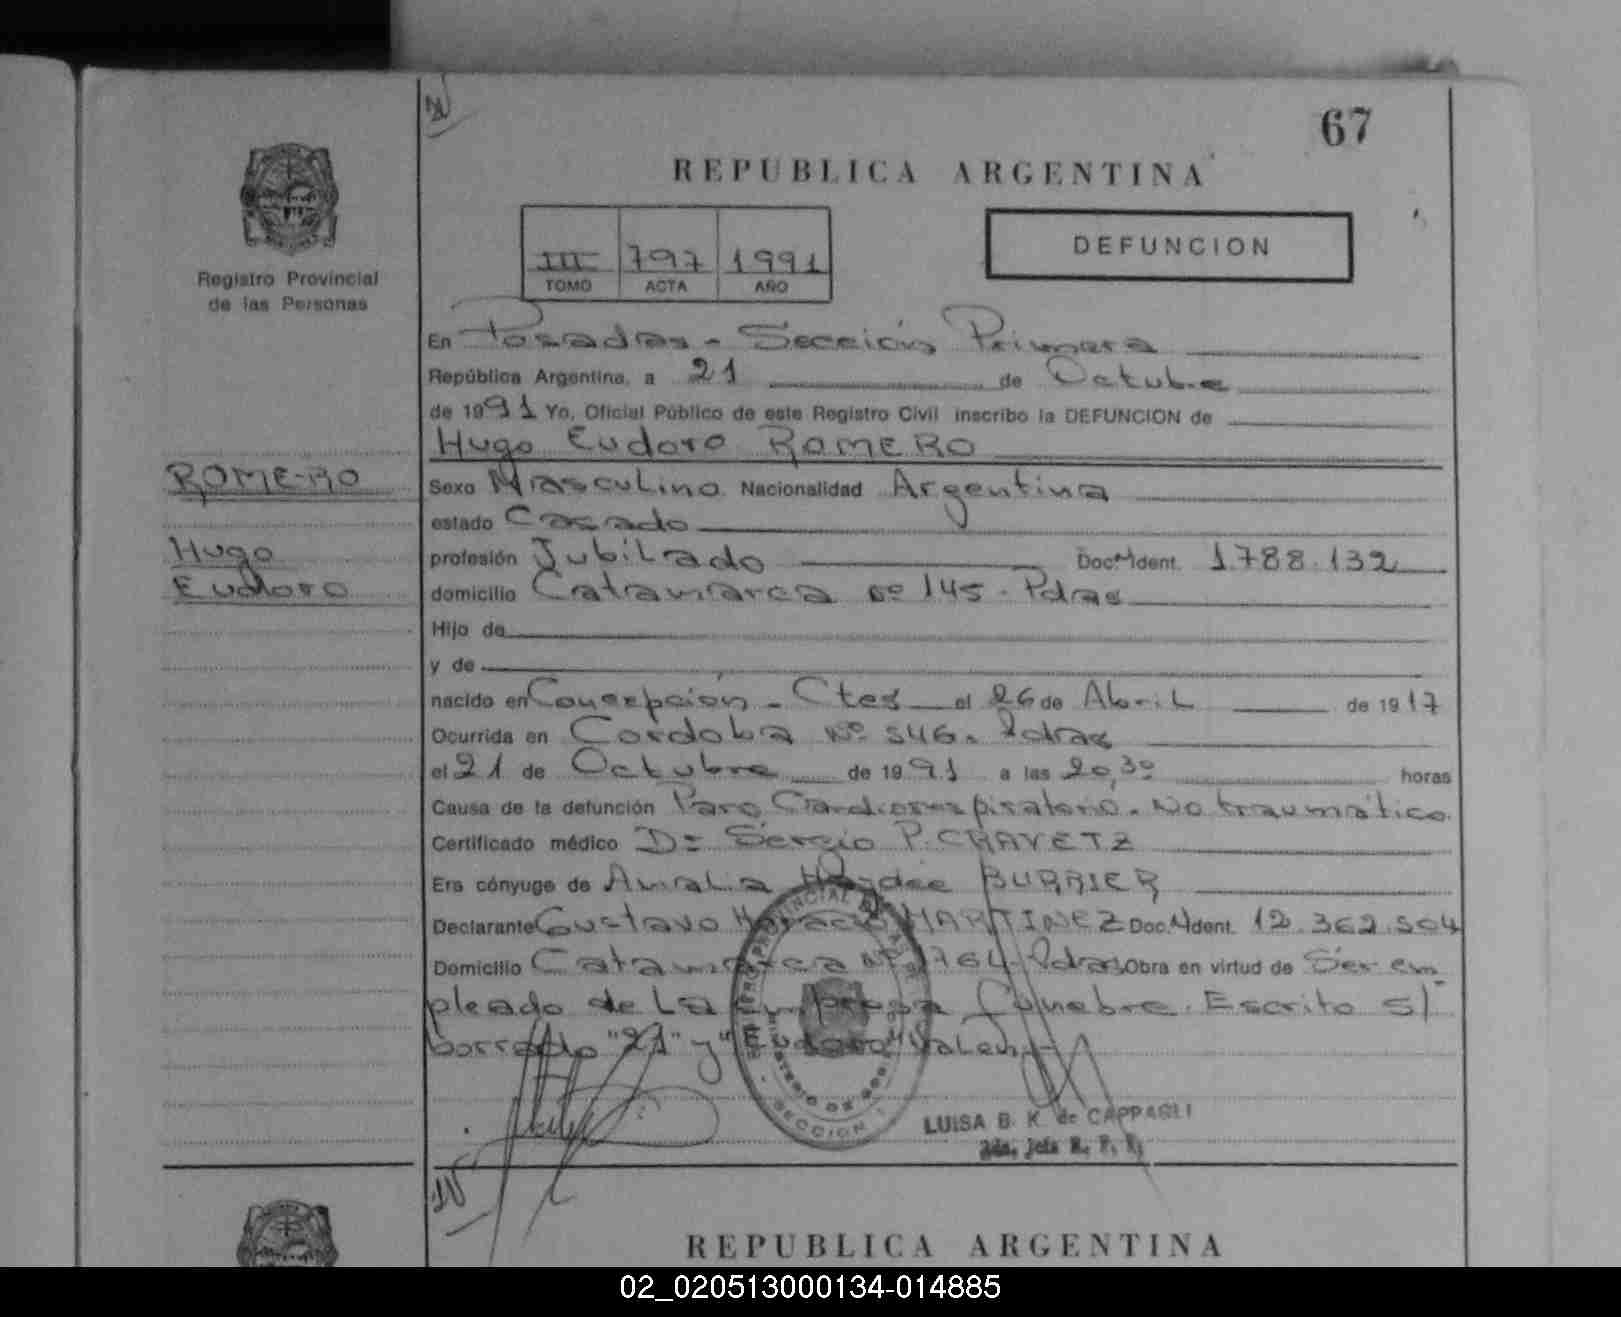 67
REPUBLICA ARGENTINA
III 797 1991
TOMO ACTA AÑO
DEFUNCION
Registro Provincial
de las Personas
En Posadas - Sección Primera
República Argentina, a 21 de Octubre
de 1991 Yo, Oficial Público de este Registro Civil inscribo la DEFUNCION de
Hugo Eudoro ROMERO
ROMERO
Hugo
Eudoro
Sexo Masculino Nacionalidad Argentina
estado Casado
profesión Jubilado Doc. Ident. 1.788.132
domicilio Catamarca Nº 145 - Pdas
Hijo de
y de
nacido en Concepción - Ctes el 26 de Abril de 1917
Ocurrida en Cordoba Nº 546. Pdas
el 21 de Octubre de 1991 a las 20,30 horas
Causa de la defunción Paro Cardiorespiratorio. No traumático.
Certificado médico Dr Sergio P. CHAVETZ
Era cónyuge de Amalia Haydée BURRIER
Declarante Gustavo Horacio MARTINEZ Doc. Ident. 12.362.504
Domicilio Catamarca Nº 1764 - Pdas Obra en virtud de Ser em
pleado de La Empresa Funebre. Escrito s/
borrado "21" y "Eudoro" Valen.
SECCION 1
LUISA B. K. de CAPPAGLI
REPUBLICA ARGENTINA
02_020513000134-014885